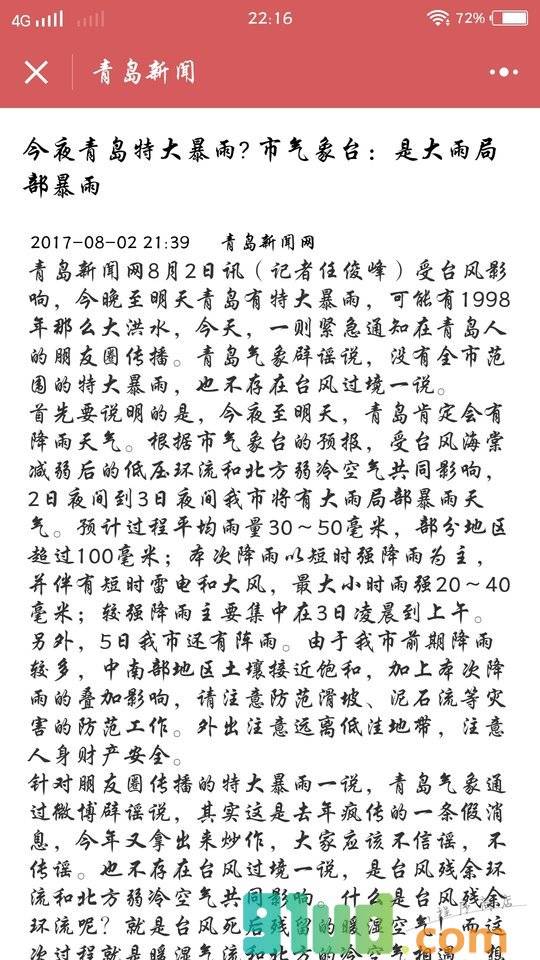 4G
22:16
72%
青岛新闻
今夜青岛特大暴雨?市气象台：是大雨局
部暴雨
2017-08-02 21:39 青岛新闻网
青岛新闻网8月2日讯（记者任俊峰）受台风影
响，今晚至明天青岛有特大暴雨，可能有1998
年那么大洪水，今天，一则紧急通知在青岛人
的朋友圈传播。青岛气象辟谣说，没有全市范
围的特大暴雨，也不存在台风过境一说。
首先要说明的是，今夜至明天，青岛肯定会有
降雨天气。根据市气象台的预报，受台风海棠
减弱后的低压环流和北方弱冷空气共同影响，
2日夜间到3日夜间我市将有大雨局部暴雨天
气。预计过程平均雨量30～50毫米，部分地区
超过100毫米；本次降雨以短时强降雨为主，
并伴有短时雷电和大风，最大小时雨强20～40
毫米；较强降雨主要集中在3日凌晨到上午。
另外，5日我市还有阵雨。由于我市前期降雨
较多，中南部地区土壤接近饱和，加上本次降
雨的叠加影响，请注意防范滑坡、泥石流等灾
害的防范工作。外出注意远离低洼地带，注意
人身财产安全。
针对朋友圈传播的特大暴雨一说，青岛气象通
过微博辟谣说，其实这是去年疯传的一条假消
息，今年又拿出来炒作，大家应该不信谣，不
传谣。也不存在台风过境一说，是台风残余环
流和北方弱冷空气共同影响。什么是台风残余
环流呢？就是台风死后残留的暖湿空气，而这
次过程就是暖湿气流和北方的冷空气相遇，想
91ud.com